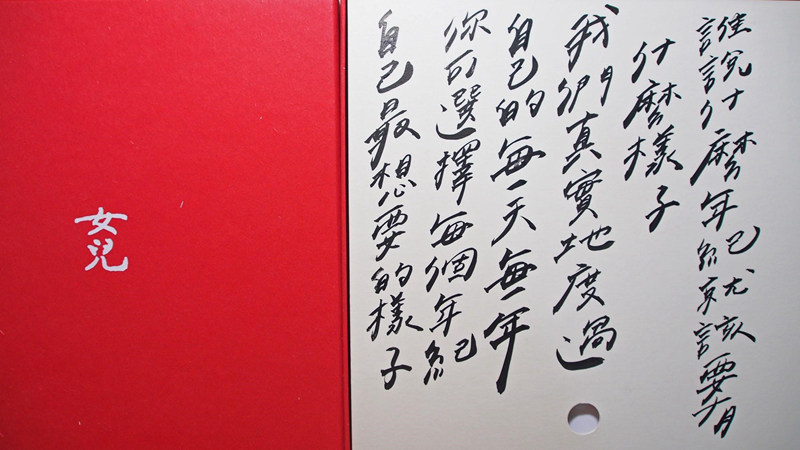 女兒
誰說什麼年紀就該要有
什麼樣子
我們真實地度過
自己的每一天每一年
你可選擇每個年紀
自己最想要的樣子